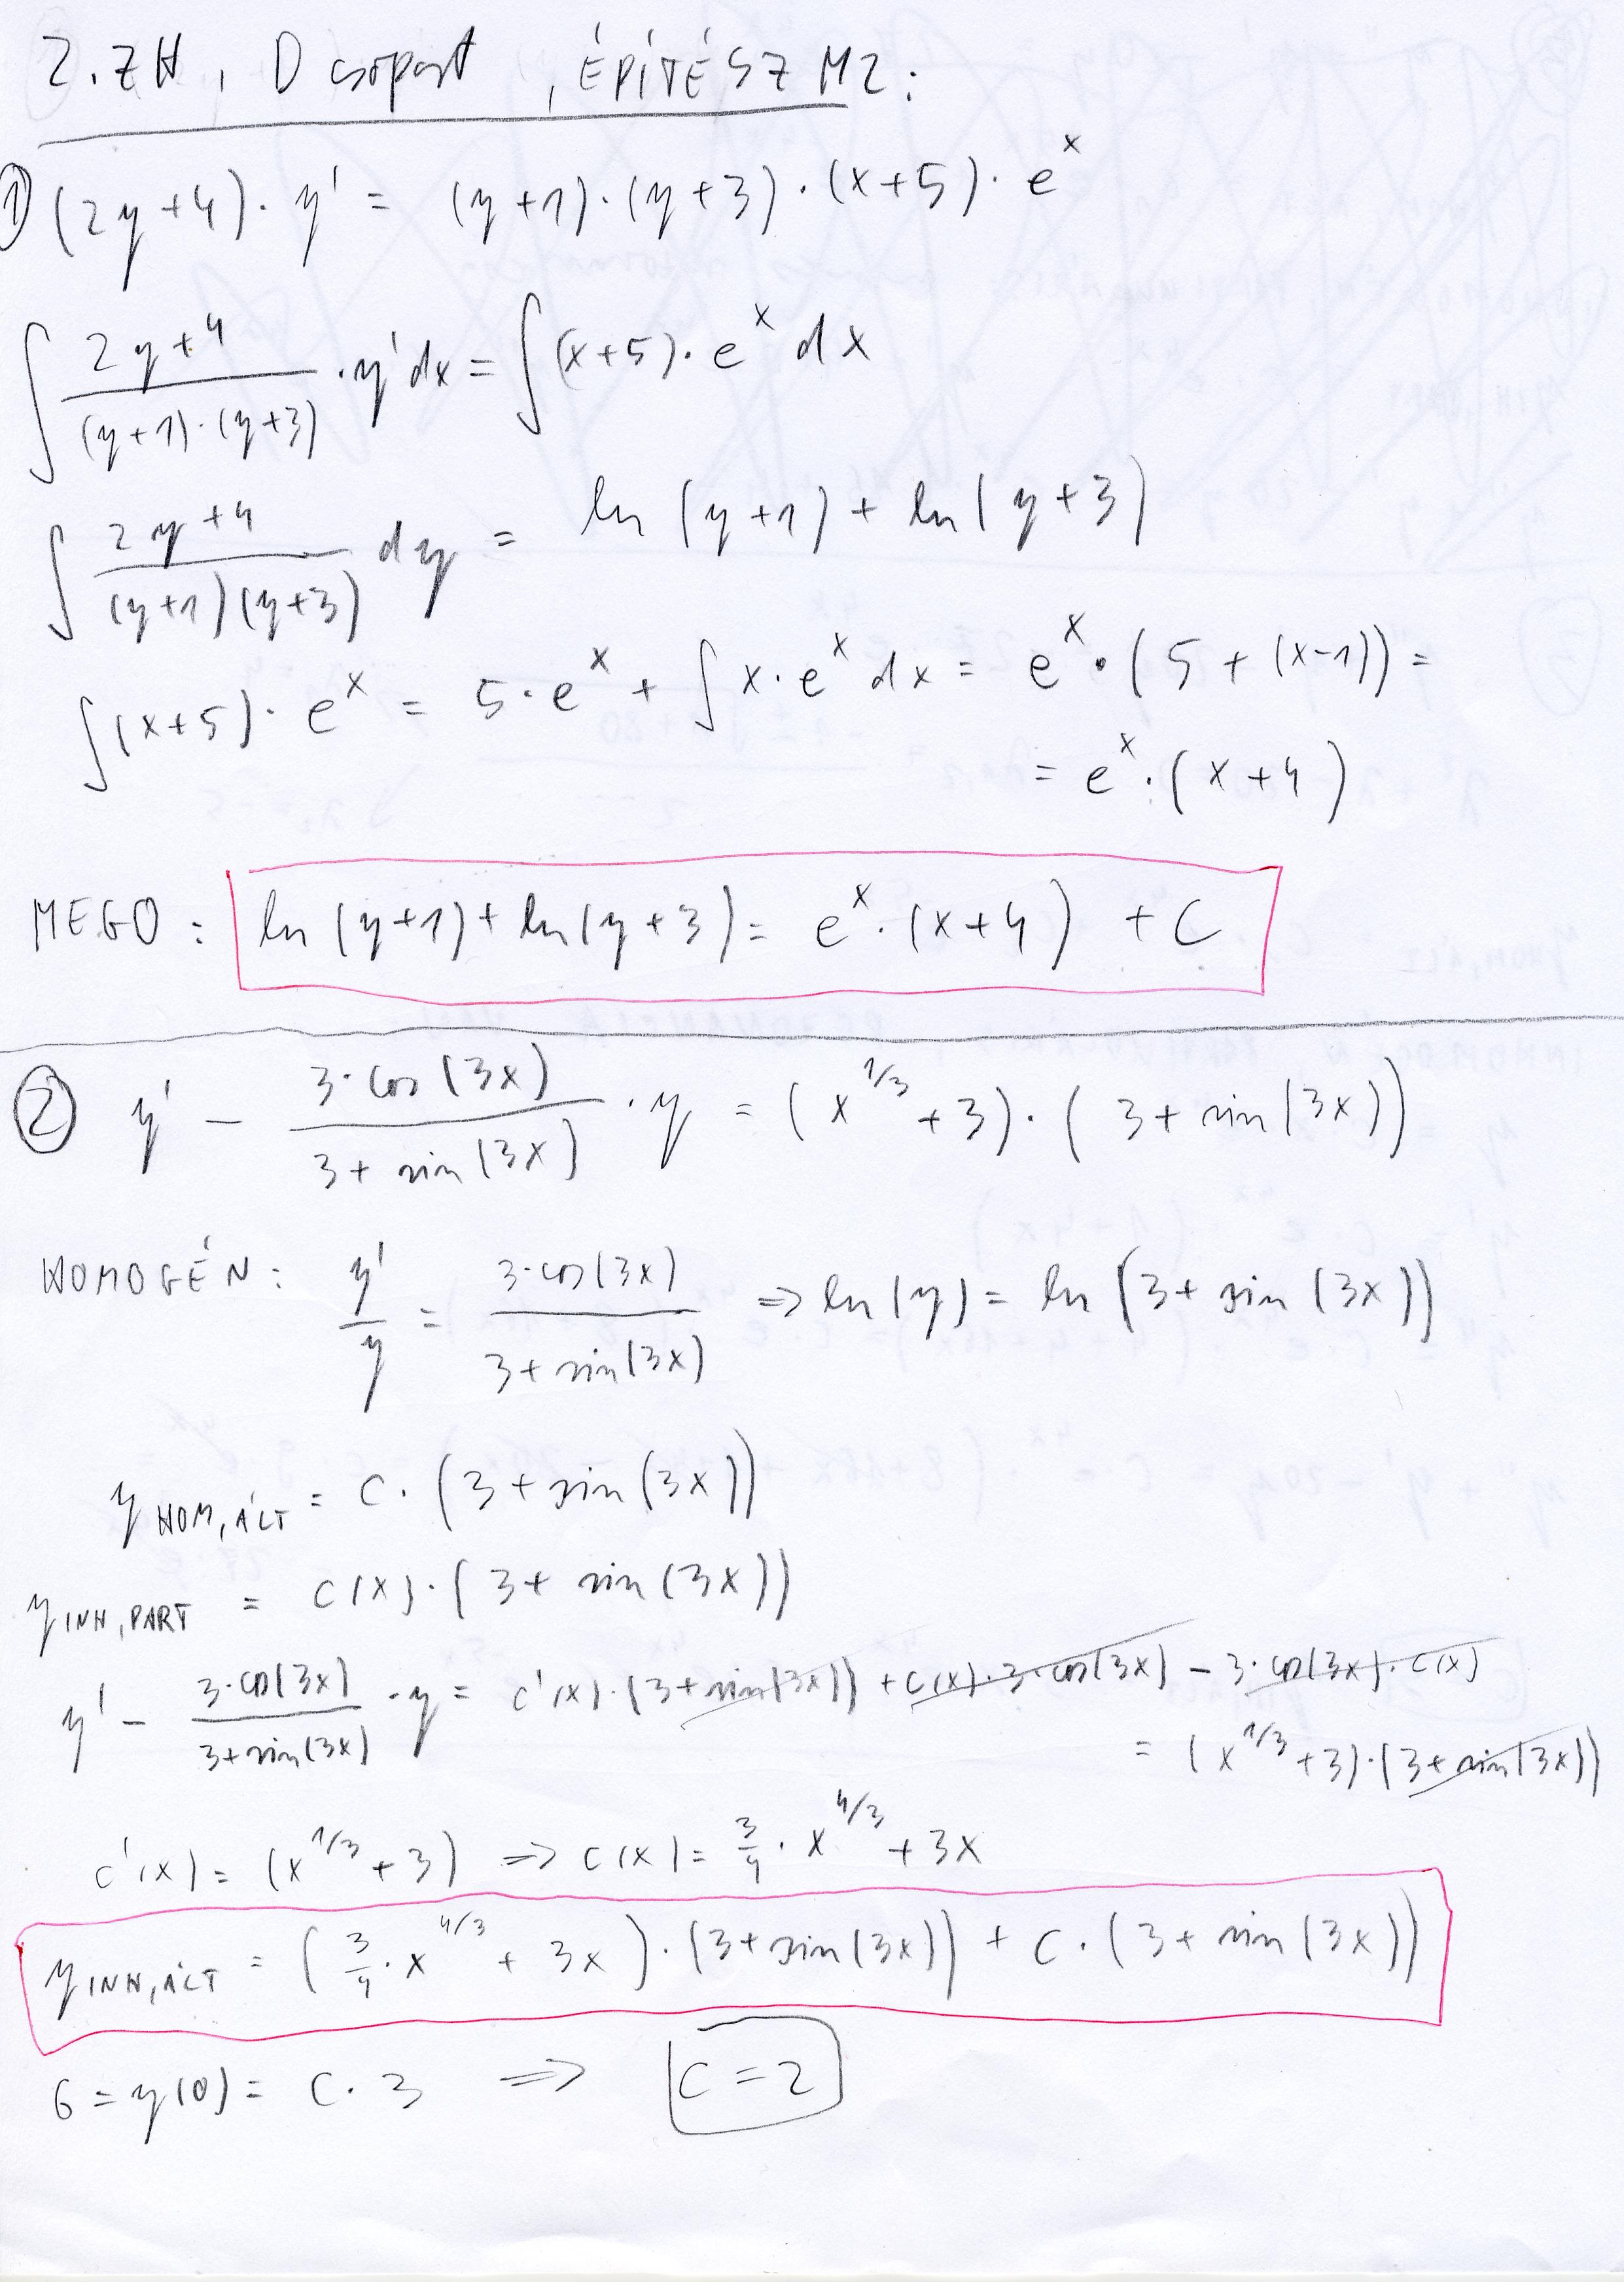 2. ZH, D csoport, ÉPÍTÉSZ M2:
① (2y+4)·y' = (y+1)·(y+3)·(x+5)·e^x
∫ (2y+4)/((y+1)·(y+3)) · y' dx = ∫ (x+5)·e^x dx
∫ (2y+4)/((y+1)(y+3)) dy = ln(y+1) + ln(y+3)
∫(x+5)·e^x = 5·e^x + ∫ x·e^x dx = e^x·(5+(x-1)) =
= e^x·(x+4)
MEGO: ln(y+1) + ln(y+3) = e^x·(x+4) + C
② y' - (3·cos(3x))/(3+sin(3x)) · y = (x^{1/3}+3)·(3+sin(3x))
HOMOGÉN: y'/y = (3·cos(3x))/(3+sin(3x)) => ln(y) = ln(3+sin(3x))
y_{HOM,ÁLT} = C·(3+sin(3x))
y_{INH,PART} = C(x)·(3+sin(3x))
y' - (3·cos(3x))/(3+sin(3x)) · y = C'(x)·(3+sin(3x)) + C(x)·3·cos(3x) - 3·cos(3x)·C(x)
= (x^{1/3}+3)·(3+sin(3x))
C'(x) = (x^{1/3}+3) => C(x) = 3/4·x^{4/3}+3x
y_{INH,ÁLT} = (3/4·x^{4/3}+3x)·(3+sin(3x)) + C·(3+sin(3x))
6 = y(0) = C·3 => C=2